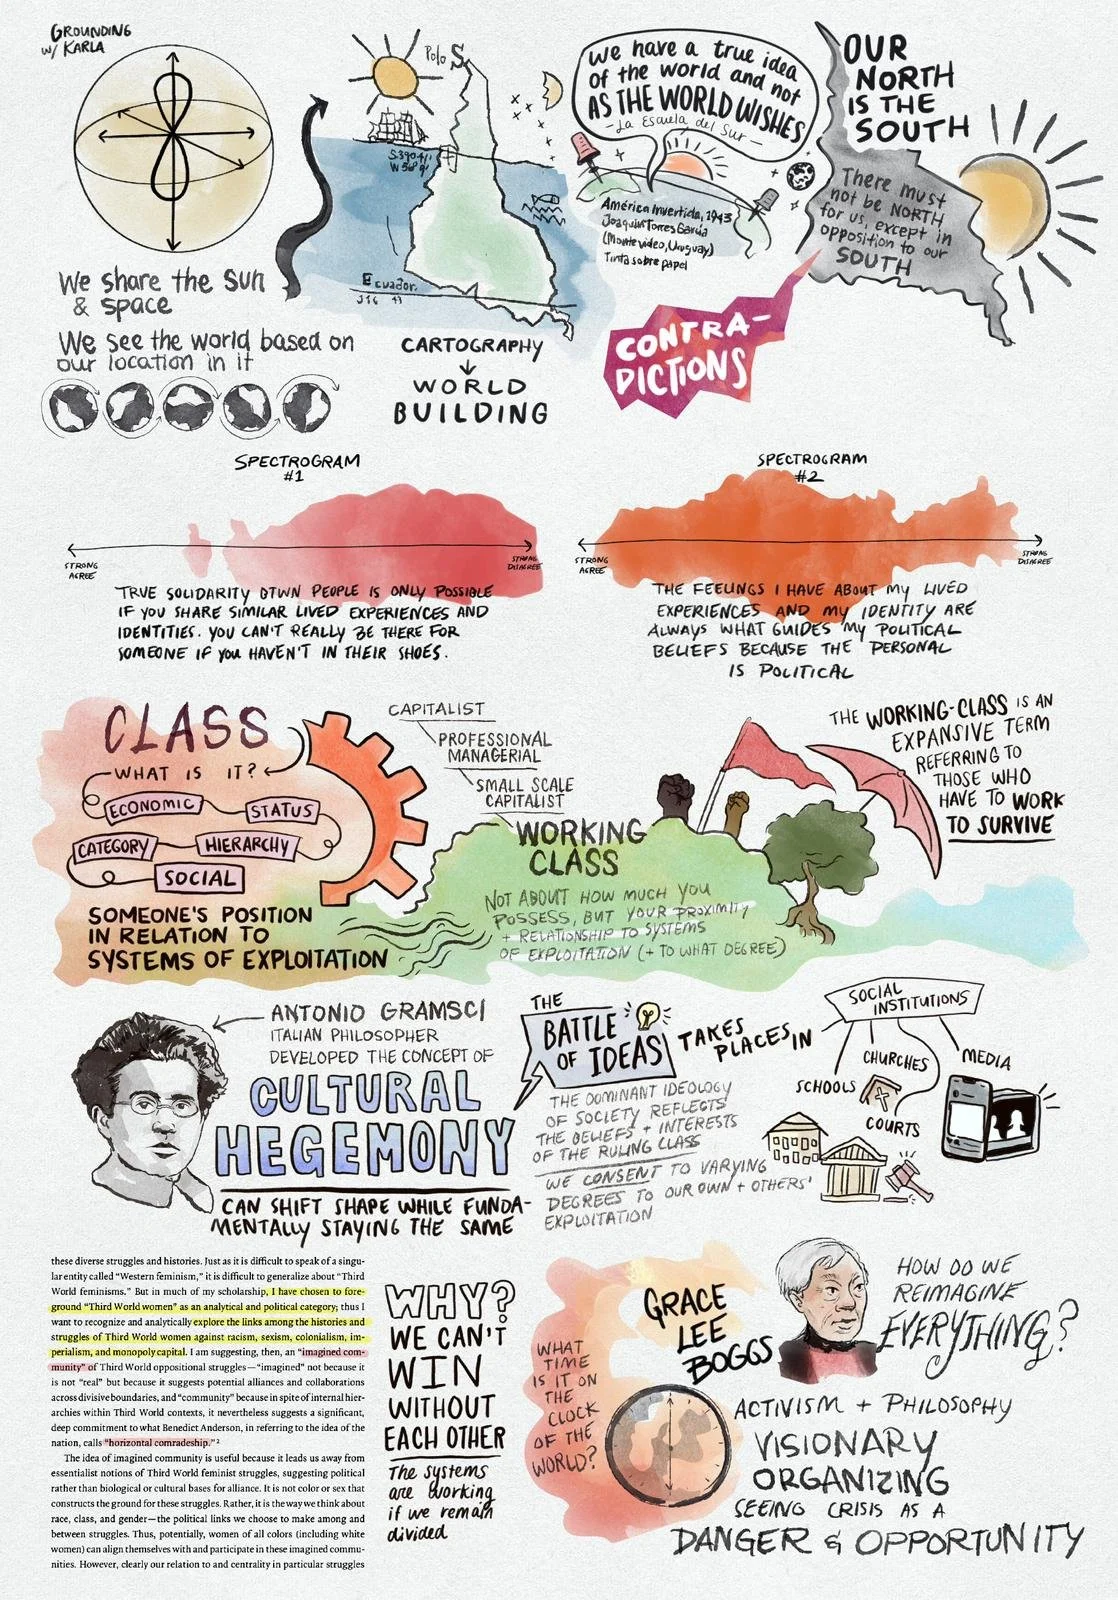 GROUNDING
w/ KARLA
We share the sun
& space
We see the world based on
our location in it
Polo S.
S.34°41'
W 56° 9'
Ecuador.
CARTOGRAPHY
WORLD
BUILDING
We have a true idea
of the world and not
AS THE WORLD WISHES
-La Escuela del Sur-
América Invertida, 1943
Joaquín Torres García
(Montevideo, Uruguay)
Tinta sobre papel
OUR
NORTH
IS THE
SOUTH
There must
not be NORTH
for us, except in
opposition to our
SOUTH
CONTRA-
DICTIONS
SPECTROGRAM
#1
STRONG
AGREE
STRONG
DISAGREE
TRUE SOLIDARITY BTWN PEOPLE IS ONLY POSSIBLE
IF YOU SHARE SIMILAR LIVED EXPERIENCES AND
IDENTITIES. YOU CAN'T REALLY BE THERE FOR
SOMEONE IF YOU HAVEN'T IN THEIR SHOES.
SPECTROGRAM
#2
STRONG
AGREE
STRONG
DISAGREE
THE FEELINGS I HAVE ABOUT MY LIVED
EXPERIENCES AND MY IDENTITY ARE
ALWAYS WHAT GUIDES MY POLITICAL
BELIEFS BECAUSE THE PERSONAL
IS POLITICAL
CLASS
WHAT IS IT?
ECONOMIC
STATUS
CATEGORY
HIERARCHY
SOCIAL
SOMEONE'S POSITION
IN RELATION TO
SYSTEMS OF EXPLOITATION
CAPITALIST
PROFESSIONAL
MANAGERIAL
SMALL SCALE
CAPITALIST
WORKING
CLASS
NOT ABOUT HOW MUCH YOU
POSSESS, BUT YOUR PROXIMITY
+ RELATIONSHIP TO SYSTEMS
OF EXPLOITATION (+ TO WHAT DEGREE)
THE WORKING-CLASS IS AN
EXPANSIVE TERM
REFERRING TO
THOSE WHO
HAVE TO WORK
TO SURVIVE
ANTONIO GRAMSCI
ITALIAN PHILOSOPHER
DEVELOPED THE CONCEPT OF
CULTURAL
HEGEMONY
CAN SHIFT SHAPE WHILE FUNDA-
MENTALLY STAYING THE SAME
THE
BATTLE
OF IDEAS
TAKES
PLACES IN
THE DOMINANT IDEOLOGY
OF SOCIETY REFLECTS
THE BELIEFS + INTERESTS
OF THE RULING CLASS
WE CONSENT TO VARYING
DEGREES TO OUR OWN + OTHERS'
EXPLOITATION
SOCIAL
INSTITUTIONS
CHURCHES
MEDIA
SCHOOLS
COURTS
these diverse struggles and histories. Just as it is difficult to speak of a singu-
lar entity called "Western feminism," it is difficult to generalize about "Third
World feminisms." But in much of my scholarship, I have chosen to fore-
ground "Third World women" as an analytical and political category; thus I
want to recognize and analytically explore the links among the histories and
struggles of Third World women against racism, sexism, colonialism, im-
perialism, and monopoly capital. I am suggesting, then, an "imagined com-
munity" of Third World oppositional struggles—"imagined" not because it
is not "real" but because it suggests potential alliances and collaborations
across divisive boundaries, and "community" because in spite of internal hier-
archies within Third World contexts, it nevertheless suggests a significant,
deep commitment to what Benedict Anderson, in referring to the idea of the
nation, calls "horizontal comradeship."²
The idea of imagined community is useful because it leads us away from
essentialist notions of Third World feminist struggles, suggesting political
rather than biological or cultural bases for alliance. It is not color or sex that
constructs the ground for these struggles. Rather, it is the way we think about
race, class, and gender—the political links we choose to make among and
between struggles. Thus, potentially, women of all colors (including white
women) can align themselves with and participate in these imagined commu-
nities. However, clearly our relation to and centrality in particular struggles
WHY?
WE CAN'T
WIN
WITHOUT
EACH OTHER
The systems
are working
if we remain
divided
WHAT
TIME
IS IT ON
THE
CLOCK
OF THE
WORLD?
GRACE
LEE
BOGGS
HOW DO WE
REIMAGINE
EVERYTHING?
ACTIVISM + PHILOSOPHY
VISIONARY
ORGANIZING
SEEING CRISIS AS A
DANGER & OPPORTUNITY